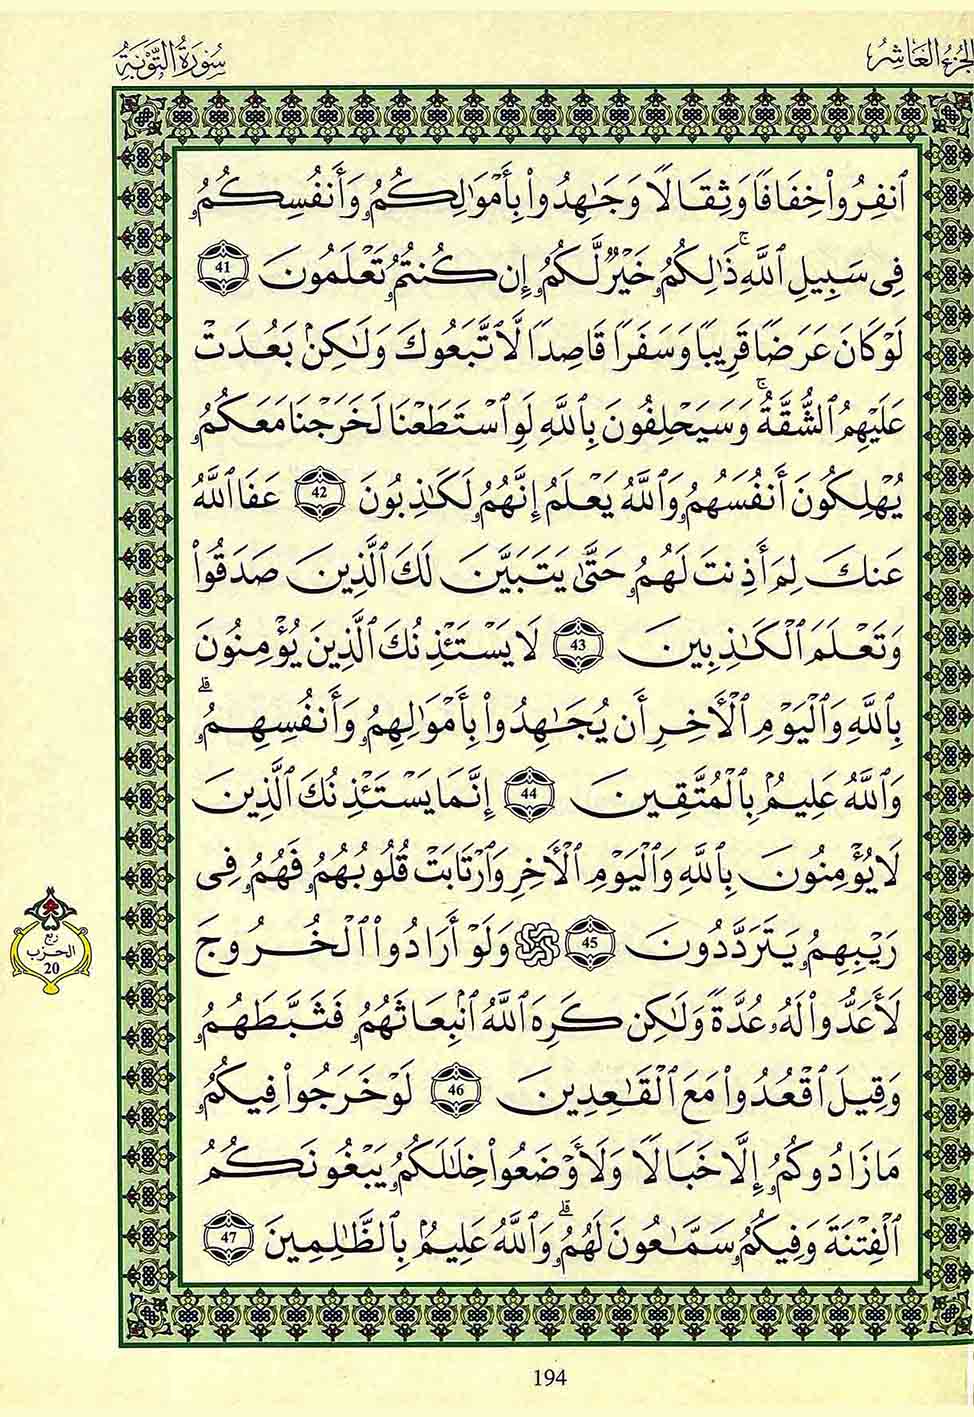 الجزء العاشر
سُورَةُ التَّوْبَة
ٱنفِرُواْ خِفَافًا وَثِقَالًا وَجَٰهِدُواْ بِأَمْوَٰلِكُمُۥ وَأَنفُسِكُمُۥ
فِى سَبِيلِ ٱللَّهِۚ ذَٰلِكُمُۥ خَيْرٌ لَّكُمُۥ إِن كُنتُمُۥ تَعْلَمُونَ 41
لَوْ كَانَ عَرَضًا قَرِيبًا وَسَفَرًا قَاصِدًا لَّاتَّبَعُوكَ وَلَٰكِنۢ بَعُدَتْ
عَلَيْهِمُ ٱلشُّقَّةُۚ وَسَيَحْلِفُونَ بِٱللَّهِ لَوِ ٱسْتَطَعْنَا لَخَرَجْنَا مَعَكُمُۥ
يُهْلِكُونَ أَنفُسَهُمُۥ وَٱللَّهُ يَعْلَمُ إِنَّهُمُۥ لَكَٰذِبُونَ 42 عَفَا ٱللَّهُ
عَنكَ لِمَ أَذِنتَ لَهُمُۥ حَتَّىٰ يَتَبَيَّنَ لَكَ ٱلَّذِينَ صَدَقُواْ
وَتَعْلَمَ ٱلْكَٰذِبِينَ 43 لَا يَسْتَـْٔذِنُكَ ٱلَّذِينَ يُؤْمِنُونَ
بِٱللَّهِ وَٱلْيَوْمِ ٱلْأَخِرِ أَن يُجَٰهِدُواْ بِأَمْوَٰلِهِمُۥ وَأَنفُسِهِمُۥۗ
وَٱللَّهُ عَلِيمُۢ بِٱلْمُتَّقِينَ 44 إِنَّمَا يَسْتَـْٔذِنُكَ ٱلَّذِينَ
لَا يُؤْمِنُونَ بِٱللَّهِ وَٱلْيَوْمِ ٱلْأَخِرِ وَٱرْتَابَتْ قُلُوبُهُمُۥ فَهُمُۥ فِى
رَيْبِهِمُۥ يَتَرَدَّدُونَ 45 وَلَوْ أَرَادُواْ ٱلْخُرُوجَ
لَأَعَدُّواْ لَهُۥ عُدَّةً وَلَٰكِن كَرِهَ ٱللَّهُ ٱنۢبِعَاثَهُمُۥ فَثَبَّطَهُمُۥ
وَقِيلَ ٱقْعُدُواْ مَعَ ٱلْقَٰعِدِينَ 46 لَوْ خَرَجُواْ فِيكُمُۥ
مَا زَادُوكُمُۥ إِلَّا خَبَالًا وَلَأَوْضَعُواْ خِلَٰلَكُمُۥ يَبْغُونَكُمُ
ٱلْفِتْنَةَ وَفِيكُمُۥ سَمَّٰعُونَ لَهُمُۥۗ وَٱللَّهُ عَلِيمُۢ بِٱلظَّٰلِمِينَ 47
ربع
الحزب
20
194